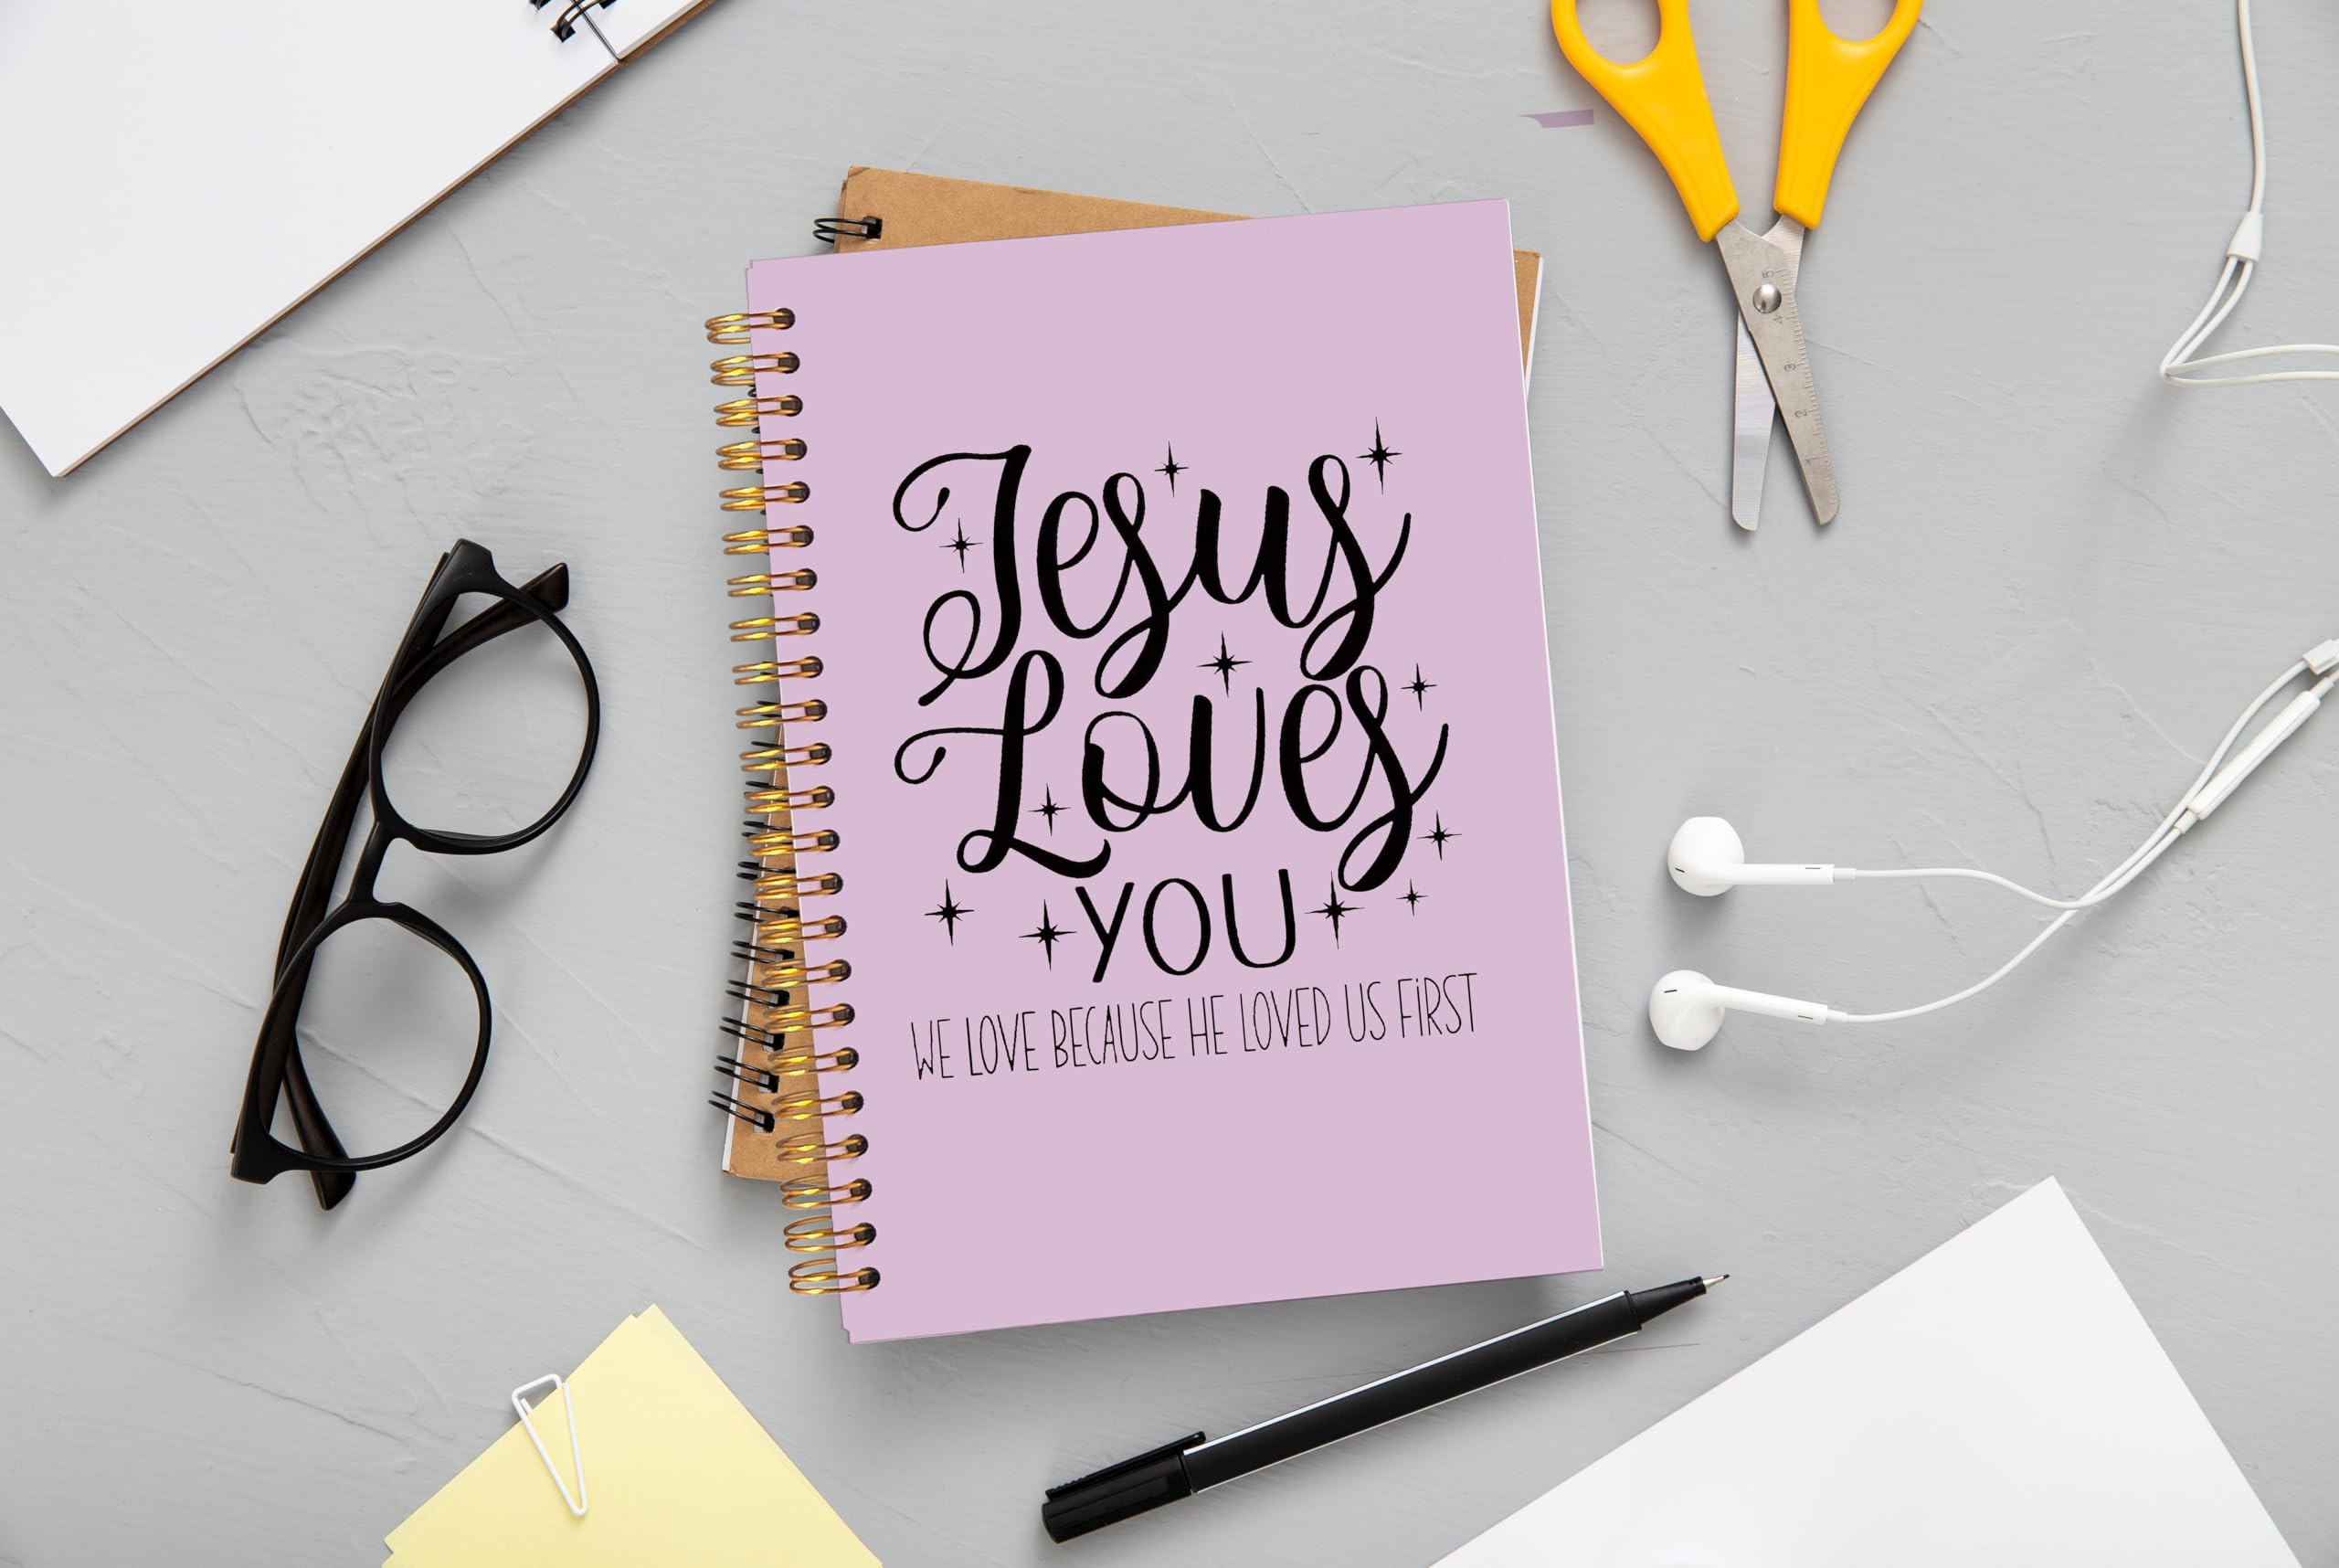 Jesus
Loves
YOU
WE LOVE BECAUSE HE LOVED US FIRST
5
4
3
2
1